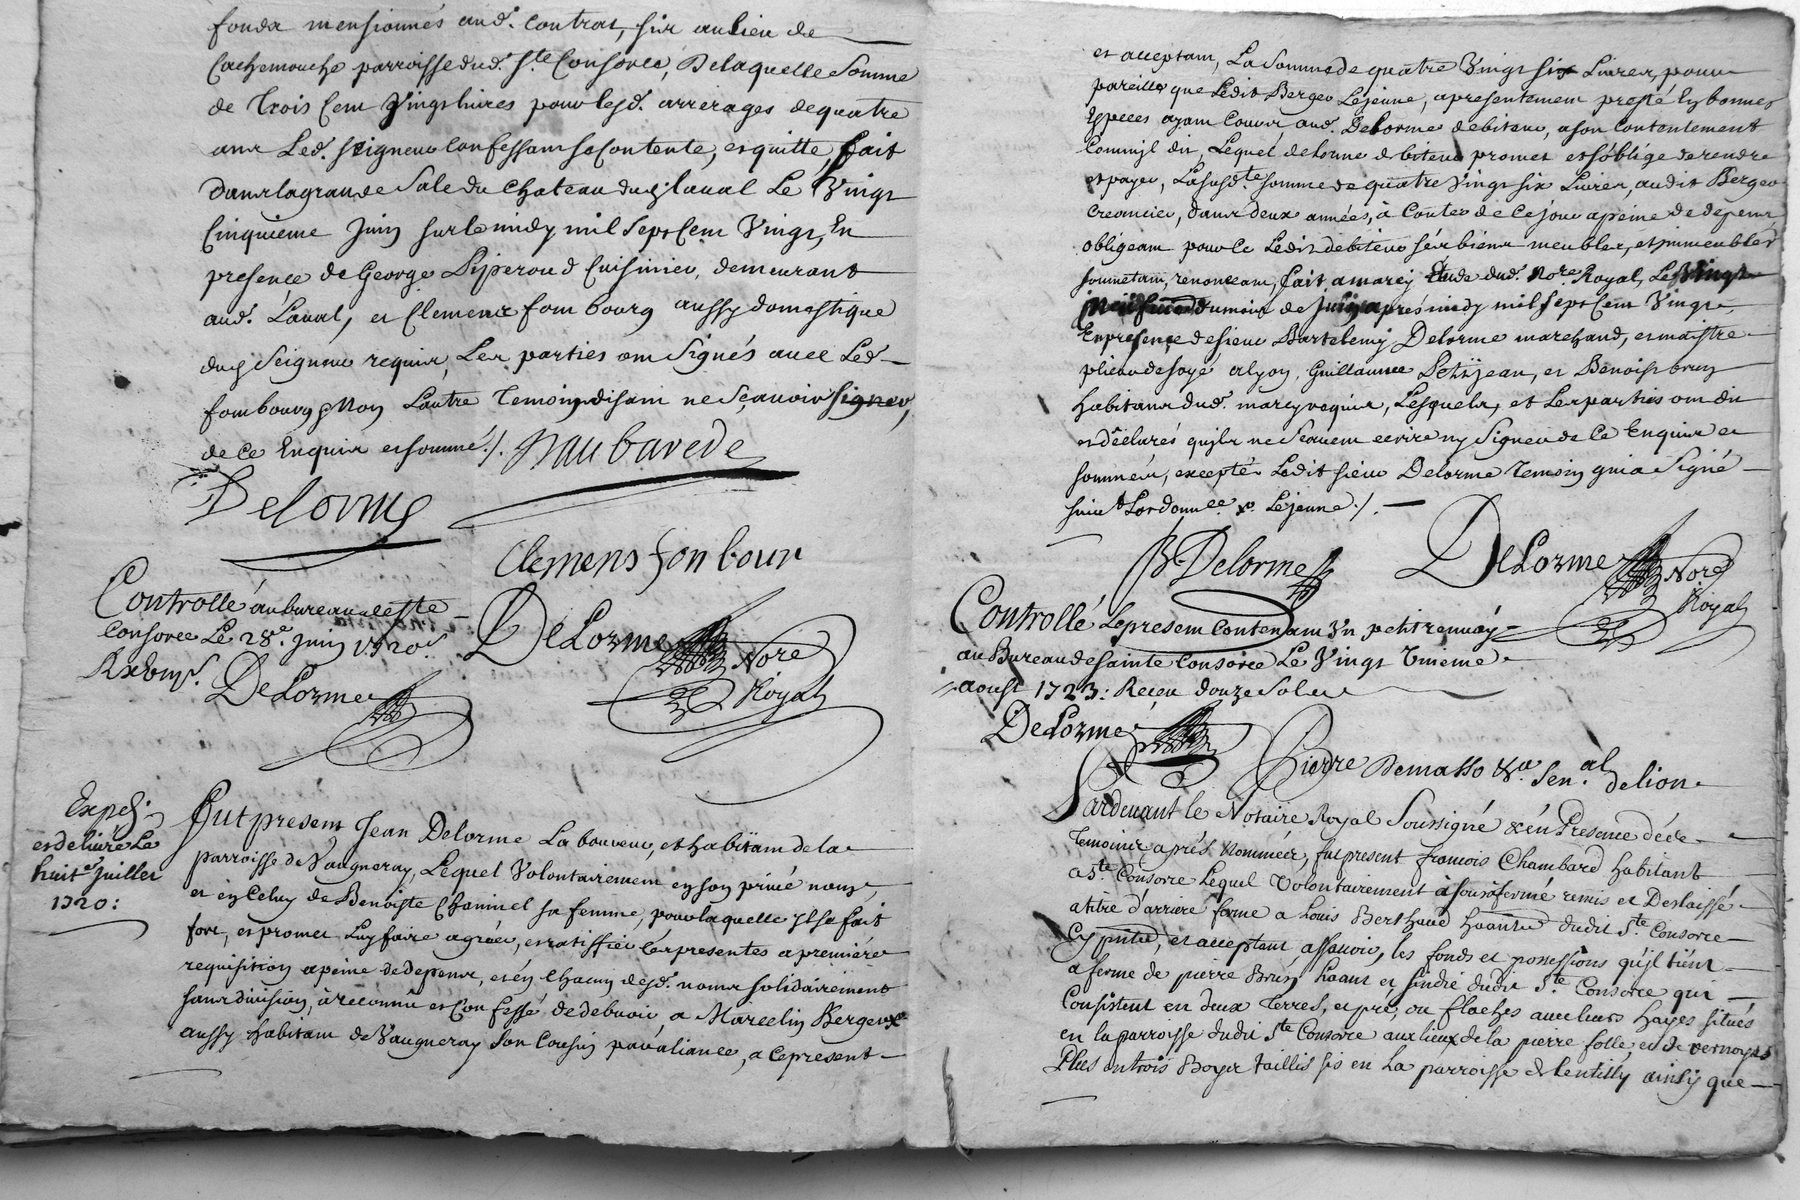 fonds mensionnés aud. Contrat, sis au lieu de
Cachemouche parroisse dud. Ste Consorce, De laquelle Somme
de Trois Cent Vingt livres pour lesd. arrerages de quatre
ans Led. seigneur Confessant se Contente, et quitte, fait
Dans la grande Sale du Chateau dud. laval Le Vingt
Cinquieme Juin sur le midy mil sept Cent Vingt, En
presence de George Cuisinier, demeurant
aud. Laval, et Clement fombourg aussy domestique
dud. Seigneur requis, Les parties ont Signés avec Led.
fombourg Non Lautre Temoin disant ne Sçavoir signer,
de Ce Enquis et sommé ./. Naubarede
Delorme
Clemens fonbour
Controllé au bureau de Ste
Consorce Le 28e. Juin 1720
DeLorme
DeLorme Nore
Royal
Expé.
et delivré Le
huit Juillet
1720:
Fut present Jean Delorme Laboureur, et habitant de la
parroisse de Vaugneray, Lequel Volontairement en son privé nom,
et en Celuy de Benoiste sa femme, pour laquelle il se fait
fort, et promet Luy faire agréer, et ratiffier Ces presentes a premiére
requisition a peine de depens, et en Chacun desd. noms solidairement
sans division, à reconnû et Confessé de debvoir, a Marcelin Berger
aussy habitant de Vaugneray Son Cousin par aliance, a Ce present
et acceptant, La Somme de quatre Vingt six Livres, pour
pareille que Ledit Berger Lejeune, a presentement presté En bonnes
Especes ayant Cours, aud. Delorme debiteur, a son Contentement
Comm'il dit, Lequel delorme debiteur promet et s'oblige de rendre
et payer, La susdte. somme de quatre Vingt six Livres, audit Berger
Creancier, dans deux années, à Conter de Ce jour a peine de depens
obligeant pour Ce Ledit debiteur sés biens meubles, et immeubles
soumettant, renonceant, fait a marcy Etude dud. Nore. Royal, Le Vingt
du mois de Juin aprés midy mil sept Cent Vingt,
En presence de sieur Bartelemy Delorme marchand, et maistre
plieur de soye a Lyon, Guillaume Petitjean, et Benoist brun
habitans dud. marcy requis, Lesquels, et Les parties ont dit
et déclarés qu'ils ne Sçavent ecrire ny Signer de Ce Enquis et
sommés, excepté Ledit sieur Delorme Temoin qui a Signé
suivt. Lordonnce. x. Lejeune ./.
B Delorme
DeLorme Nore
Royal
Controllé Le present Contenant Un petit renvoy
au Bureau de Sainte Consorce Le Vingt Unieme
aoust 1723: Receu douze Sols
DeLorme
Pierre Demasso &a. Sen.al de lion
Pardevant le Notaire Royal Soussigné & én Presence dé de
Temoins aprés Nommés, fut present francois Chambard habitant
a Ste Consorce Lequel Volontairement à soûsafermé remis et Deslaissé
a titre d'arriere ferme a Louis Berthaud haantt. dudit Ste Consorce
Cy pnt. et acceptant assavoir, les fonds et possessions qu'jl tient
a ferme de pierre haant. et sindic dudit Ste Consorce qui
Consistent en deux Terres, et pré, ou flaches avec leurs hayes situés
en la parroisse dudit Ste Consorce aux lieux de la pierre folle, et de vernoyes
Plus un bois Taillis sis en La parroisse de lentilly ainsy que